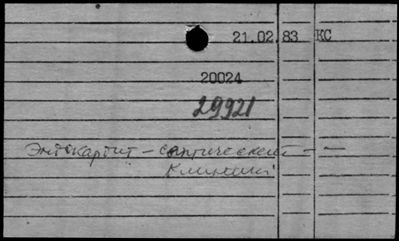 21.02.83 КС
20024
29921
Эндокардит – септический –
клиника